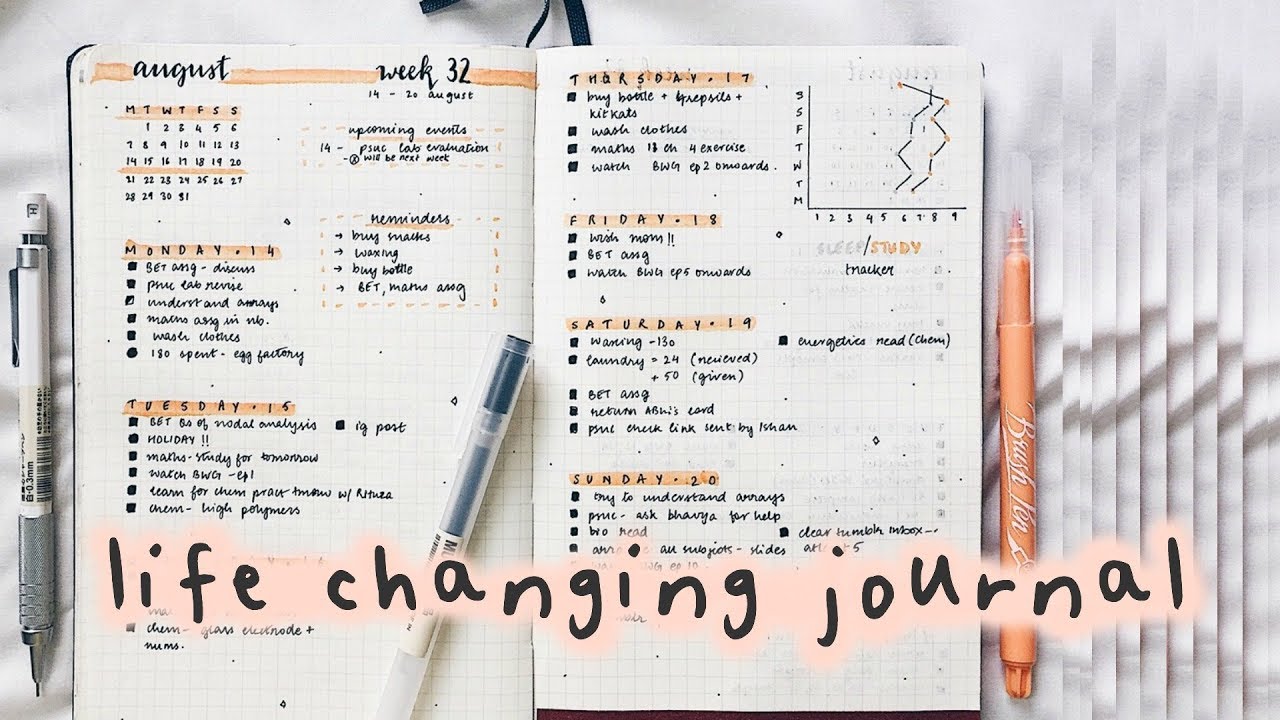 august week 32
14 - 20 august
M T W T F S S
1 2 3 4 5 6
7 8 9 10 11 12 13
14 15 16 17 18 19 20
31 22 23 24 25 26 27
28 29 30 31
upcoming events
14 - psuc lab evaluation
will be next week
reminders
→ buy snacks
→ waxing
→ buy bottle
→ BET, maths assg
MONDAY.14
BET assg - discuss
psuc lab revise
understand arrays
maths assg in nb.
wash clothes
180 spent - egg factory
TUESDAY.15
BET Qs of nodal analysis
ig post
HOLIDAY !!
maths - study for tomorrow
watch BWG - ep1
learn for chem pract tmrw w/ Rituza
chem - high polymers
chem - glass electrode +
nums.
THURSDAY.17
buy bottle + strepsils +
kitkats
wash clothes
maths 18 ch 4 exercise
watch BWG ep 2 onwards.
S
S
F
T
W
T
M
1 2 3 4 5 6 7 8 9
SLEEP/STUDY
tracker
FRIDAY.18
wish mom!!
BET assg
watch BWG ep 5 onwards
SATURDAY.19
waxing - 130
energetics read (chem)
laundry = 24 (recieved)
+ 50 (given)
BET assg
return Abhi's card
psuc check link sent by Ishan
SUNDAY.20
try to understand arrays
psuc - ask bhavya for help
bio read
clear tumblr inbox--
all subjects - slides
5
life changing journal
Brush Pen
0.3mm